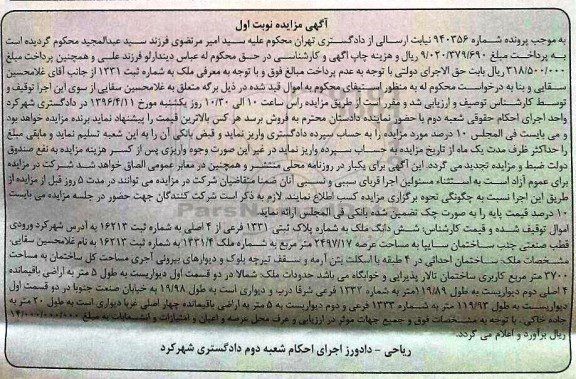 آگهی مزایده نوبت اول
به موجب پرونده شماره ۹۴۰۳۵۶ نیابت ارسالی از دادگستری تهران محکوم علیه سید امیر مرتضوی فرزند سید عبدالمجید محکوم گردیده است
به پرداخت مبلغ ۹/۰۲۰/۳۷۹/۶۹۰ ریال و هزینه چاپ آگهی و کارشناسی در حق محکوم له عباس دیندارلو فرزند علی و همچنین پرداخت مبلغ
۳۱۸/۵۰۰/۰۰۰ ریال بابت حق الاجرای دولتی با توجه به عدم پرداخت مبالغ فوق و با توجه به معرفی ملک به شماره ثبت ۱۳۳۱ از جانب آقای غلامحسین
سقایی و بنا به درخواست محکوم له به منظور استیفای محکوم به اموال قید شده در ذیل برگه متعلق به غلامحسین سقایی از سوی این اجرا توقیف و
توسط کارشناس توصیف و ارزیابی شد و مقرر است از طریق مزایده راس ساعت ۱۰ الی ۱۰/۳۰ روز یکشنبه مورخ ۱۳۹۶/۴/۱۱ در دادگستری شهرکرد
واحد اجرای احکام حقوقی شعبه دوم با حضور نماینده دادستان محترم به فروش برسد هر کس بالاترین قیمت را پیشنهاد نماید برنده مزایده خواهد بود
و می بایست فی المجلس ۱۰ درصد مورد مزایده را به حساب سپرده دادگستری واریز نماید و قبض بانکی آن را به این شعبه تسلیم نماید و مابقی مبلغ
را حداکثر ظرف مدت یک ماه از تاریخ مزایده به حساب سپرده واریز نماید در غیر این صورت وجوه واریزی پس از کسر هزینه مزایده به نفع صندوق
دولت ضبط و مزایده تجدید می گردد. این آگهی برای یکبار در روزنامه محلی منتشر و همچنین در معابر عمومی الصاق خواهد شد شرکت در مزایده
برای عموم آزاد است به استثناء مسئولین اجرا قربای سببی و نسبی آنان ضمنا متقاضیان شرکت در مزایده می توانند در مدت ۵ روز قبل از مزایده از
طریق این اجرا نسبت به چگونگی نحوه برگزاری مزایده کسب اطلاع نمایند. لازم به ذکر است شرکت کنندگان جهت حضور در جلسه مزایده می بایست
۱۰ درصد قیمت پایه را به صورت چک تضمین شده بانکی فی المجلس ارائه نمایند
اموال توقیف شده و قیمت کارشناس: شش دانگ ملک به شماره پلاک ثبتی ۱۳۳۱ فرعی از ۴ اصلی به شماره ثبت ۱۶۲۱۳ به آدرس شهرکرد ورودی
قطب صنعتی جنب ساختمان سایپا به مساحت عرصه ۲۴۹۷/۱۷ متر مربع به شماره ملک ۱۳۳۱/۴ به شماره ثبت ۱۶۲۱۳ به نام غلامحسین سقایی.
مشخصات ملک: ساختمان احداثی در ۴ طبقه با اسکلت بتن آرمه و سقف تیرچه بلوک و دیوارهای بیرونی آجری مساحت کل ساختمان به مساحت
۳۷۰۰ متر مربع کاربری ساختمان تالار پذیرایی و خوابگاه می باشد حدودات ملک: شمالا در دو قسمت اول دیواریست به طول ۵ متر به اراضی باقیمانده
۴ اصلی دوم دیواریست به طول ۱۱۹/۸۹ متر به شماره ۱۳۳۲ فرعی شرقا درب و دیواری است به طول ۱۹/۹۸ به خیابان صنعت جنوبا در دو قسمت اول
دیواریست به طول ۱۱۹/۹۳ متر به شماره ۱۳۳۳ فرعی و دوم دیواریست به ۵ متر به اراضی باقیمانده چهار اصلی غربا دیواری است به طول ۲۰ متر به
جاده خاکی. با توجه به مشخصات فوق و جمیع جهات موثر در ارزیابی و عرف محل عرصه و اعیان و امتیازات و انشعابات به مبلغ ۱۴/۰۰۰/۰۰۰/۰۰۰
ریال برآورد و اعلام می گردد.
ریاحی - دادورز اجرای احکام شعبه دوم دادگستری شهرکرد